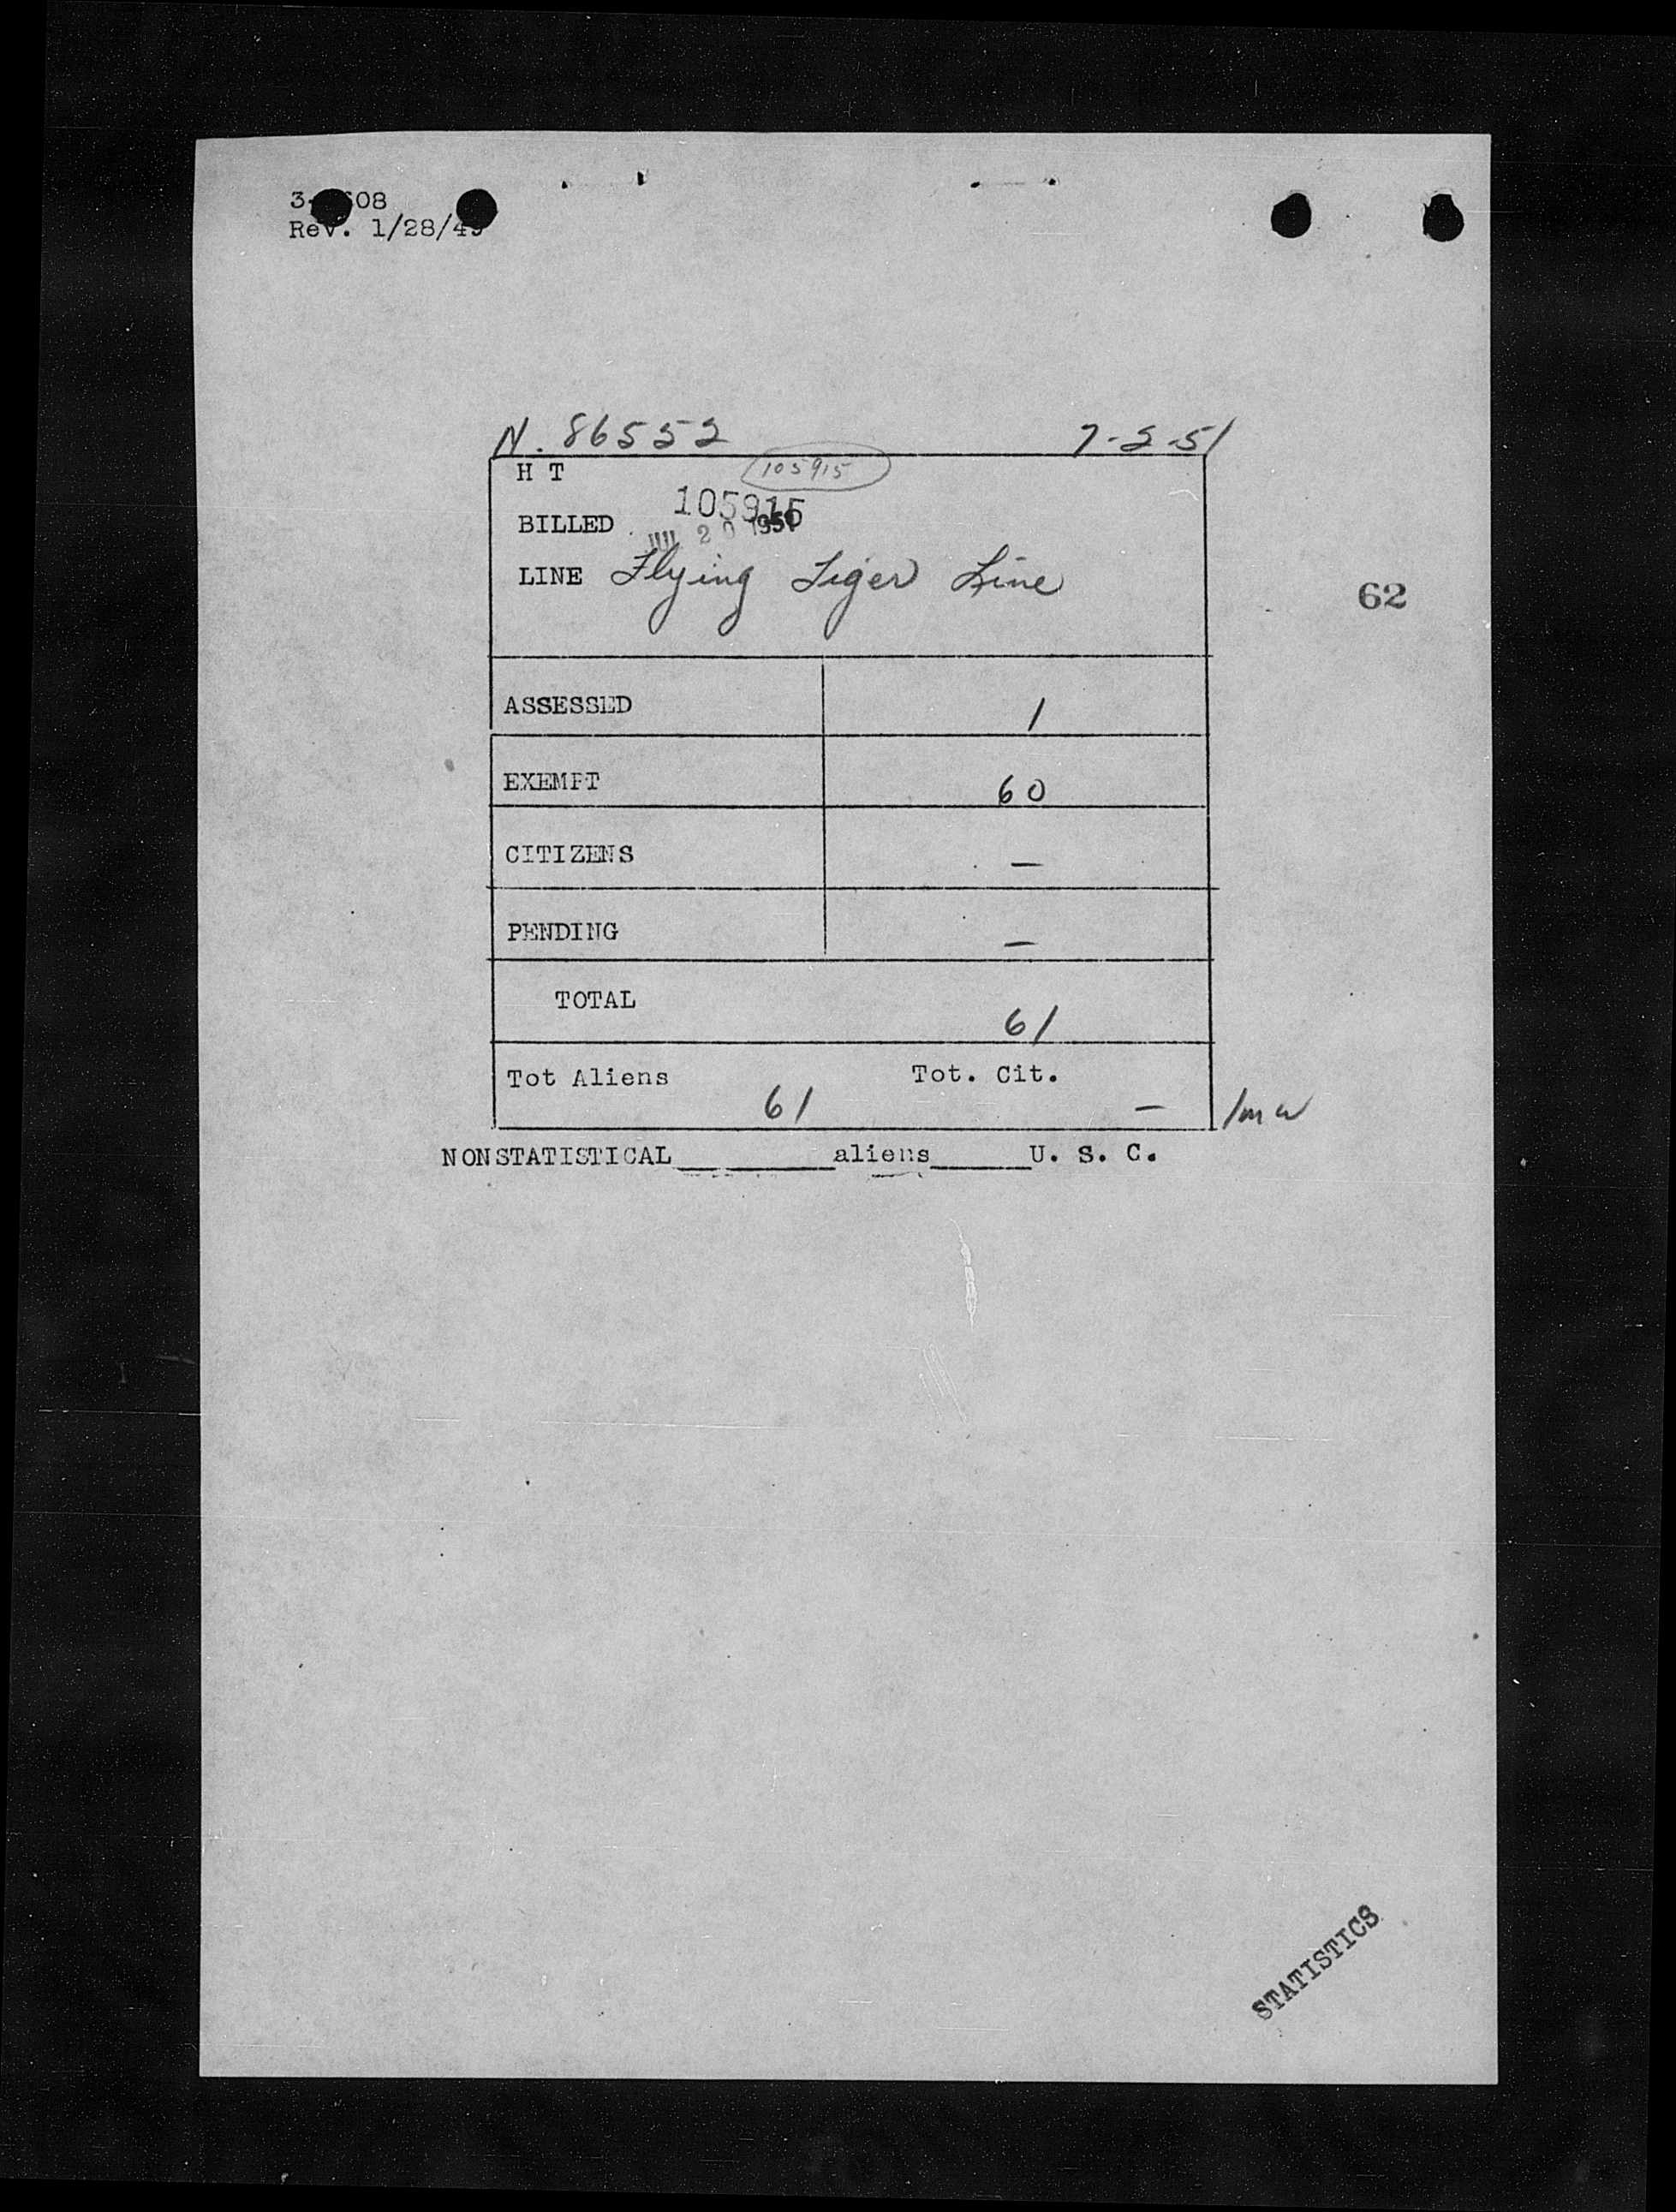 Rev. 1/28/49
N. 86552 7-2-51
H T 105915
105915
BILLED 20 1951
LINE Flying Tiger Line
62
ASSESSED 1
EXEMPT 60
CITIZENS —
PENDING —
TOTAL 61
Tot Aliens 61 Tot. Cit. —
NONSTATISTICAL________aliens_____U. S. C.
STATISTICS